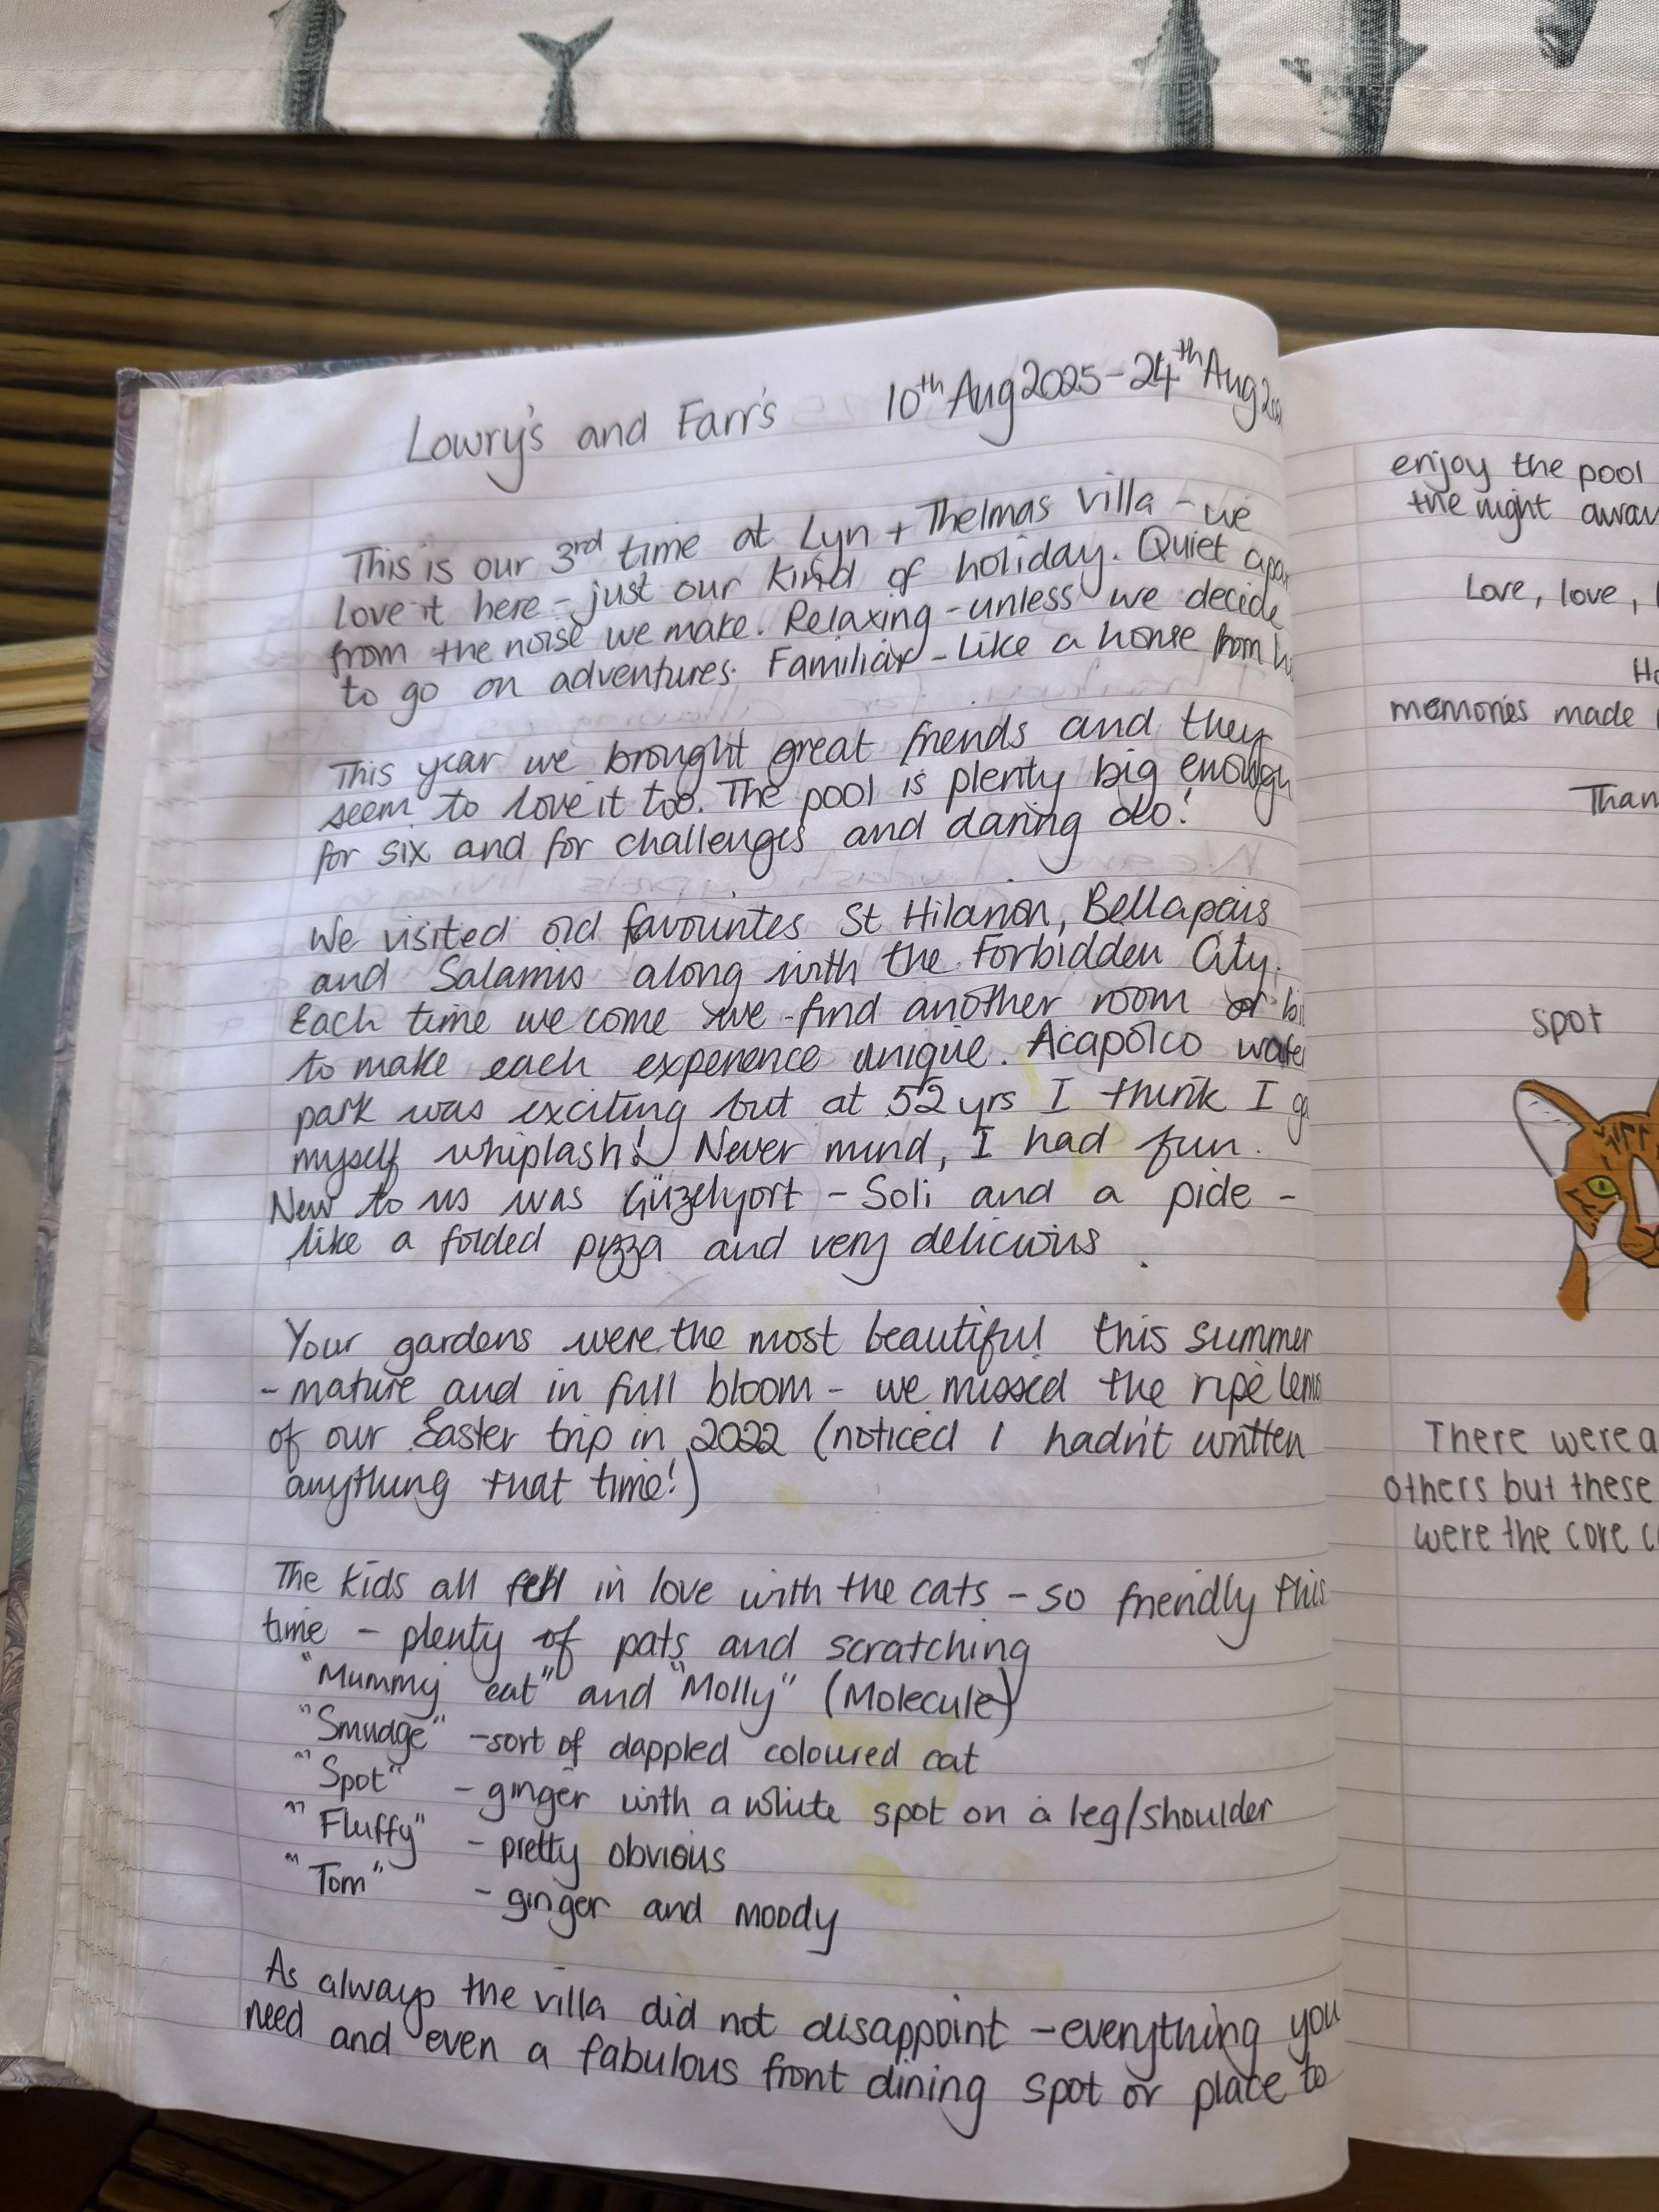 Lowry's and Farr's 10th Aug 2025 - 24th Aug
This is our 3rd time at Lyn + Thelmas villa - we
love it here - just our kind of holiday. Quiet
from the noise we make. Relaxing - unless we decide
to go on adventures. Familiar - Like a home from
This year we brought great friends and they
seem to love it too. The pool is plenty big enough
for six and for challenges and daring do!
We visited old favourites St Hilarion, Bellapais
and Salamis along with the Forbidden City.
Each time we come we find another room or
to make each experience unique. Acapolco water
park was exciting but at 52 yrs I think I
myself whiplash! Never mind, I had fun.
New to us was Güzelyort - Soli and a pide -
like a folded pizza and very delicious.
Your gardens were the most beautiful this summer
- mature and in full bloom - we missed the ripe
of our Easter trip in 2022 (noticed I hadn't written
anything that time!)
The kids all fell in love with the cats - so friendly this
time - plenty of pats and scratching
"Mummy cat" and "Molly" (Molecule)
"Smudge" - sort of dappled coloured cat
"Spot" - ginger with a white spot on a leg/shoulder
"Fluffy" - pretty obvious
"Tom" - ginger and moody
As always the villa did not disappoint - everything you
need and even a fabulous front dining spot or place to
enjoy the pool
the night
Love, love,
memories made
spot
There were a
others but these
were the core